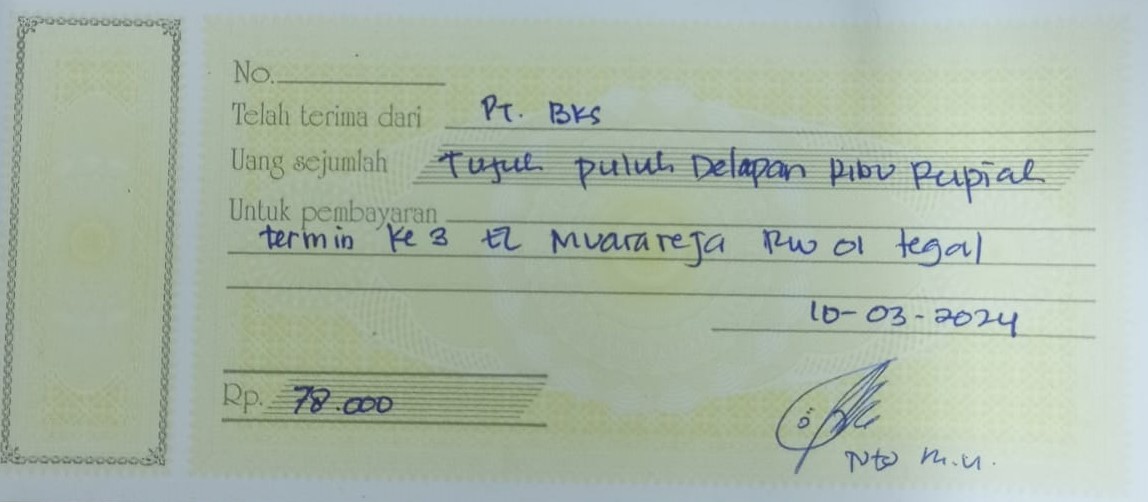 No.
Telah terima dari PT. BKS
Uang sejumlah Tujuh puluh Delapan Ribu Rupiah
Untuk pembayaran
termin ke 3 tl Muarareja RW 01 tegal
10-03-2024
Rp. 78.000
M.U.